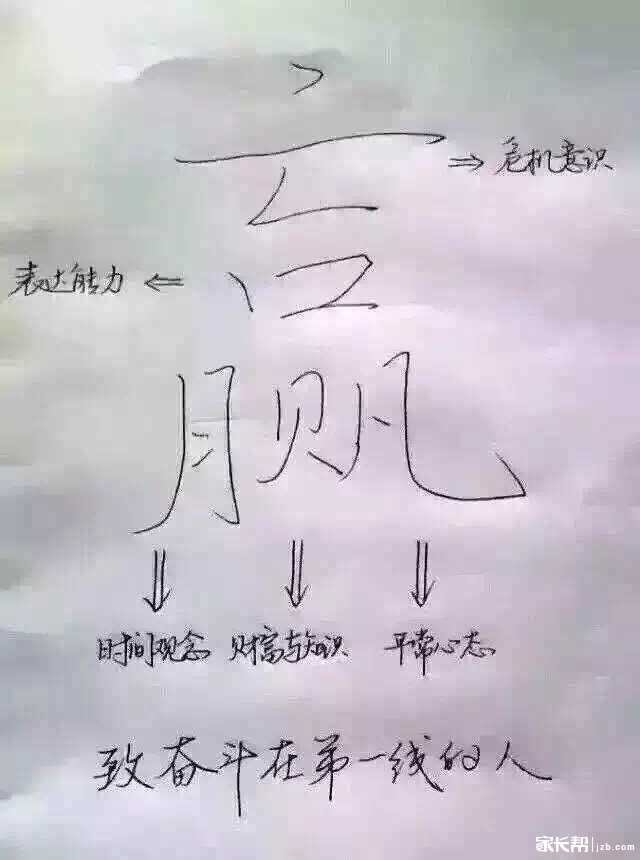 赢
危机意识
表达能力
时间观念 财富与知识 平常心态
致奋斗在第一线的人
家长帮 jzb.com